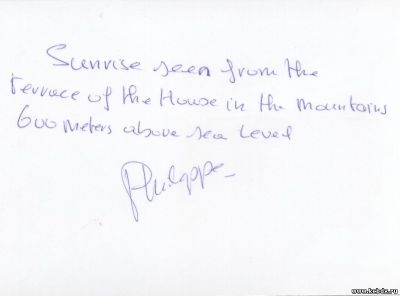 Sunrise seen from the
terrace of the House in the mountains
600 meters above sea level
Philippe
www.kubdx.ru